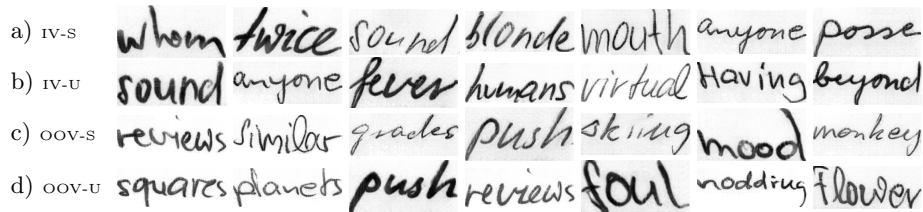 a) IV-S whom twice sound blonde mouth anyone posse
b) IV-U sound anyone fever humans virtual Having beyond
c) OOV-S reviews Similar grades push skiing mood monkey
d) OOV-U squares planets push reviews foul nodding Flower